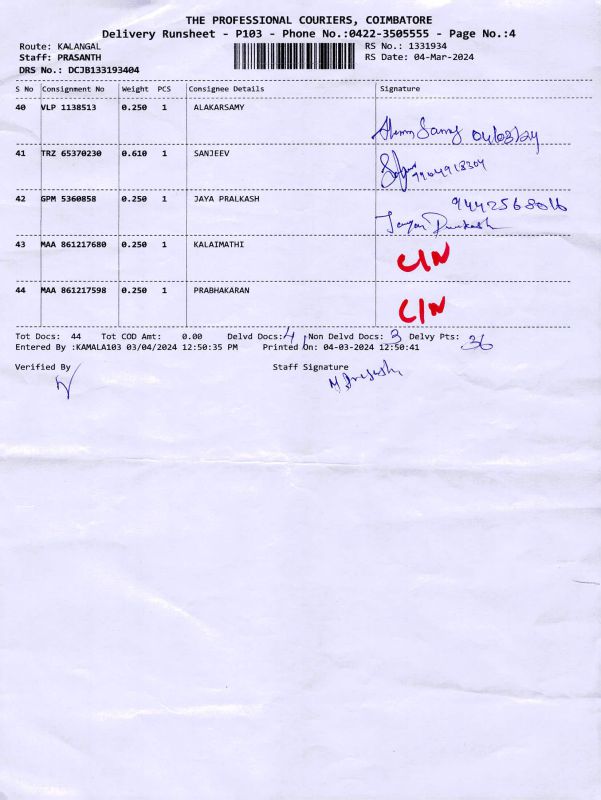 THE PROFESSIONAL COURIERS, COIMBATORE
Delivery Runsheet - P103 - Phone No.:0422-3505555 - Page No.:4
Route: KALANGAL RS No.: 1331934
Staff: PRASANTH RS Date: 04-Mar-2024
DRS No.: DCJB133193404
S No Consignment No Weight PCS Consignee Details Signature
40 VLP 1138513 0.250 1 ALAKARSAMY
Samy 04/03/24
41 TRZ 65370230 0.610 1 SANJEEV
42 GPM 5360858 0.250 1 JAYA PRALKASH 9442568016
43 MAA 861217680 0.250 1 KALAIMATHI C/N
44 MAA 861217598 0.250 1 PRABHAKARAN C/N
Tot Docs: 44 Tot COD Amt: 0.00 Delvd Docs: 41 Non Delvd Docs: 3 Delvy Pts: 36
Entered By :KAMALA103 03/04/2024 12:50:35 PM Printed On: 04-03-2024 12:50:41
Verified By Staff Signature